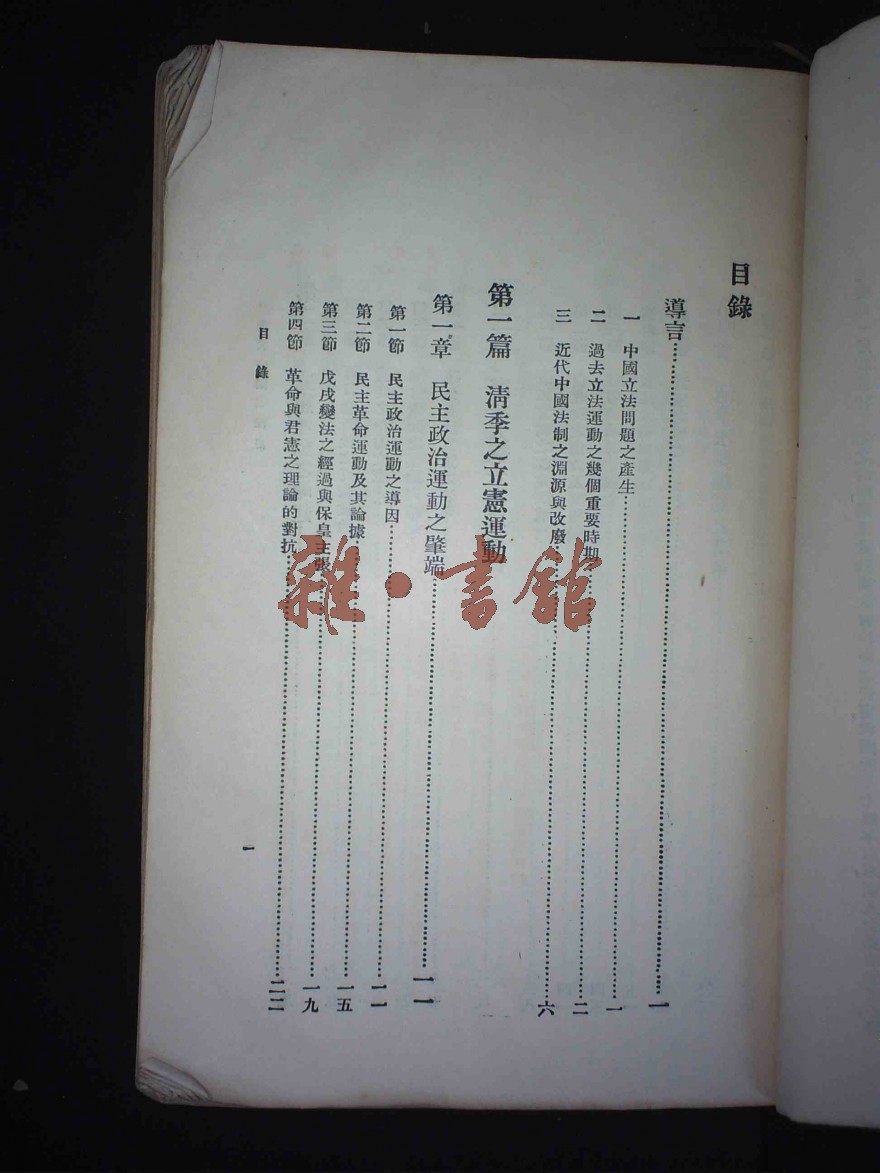 目錄
導言…………一
一 中國立法問題之產生…………一
二 過去立法運動之幾個重要時期…………二
三 近代中國法制之淵源與改廢…………六
第一篇 清季之立憲運動
第一章 民主政治運動之肇端…………一一
第一節 民主政治運動之導因…………一一
第二節 民主革命運動及其論據…………一五
第三節 戊戌變法之經過與保皇主張…………一九
第四節 革命與君憲之理論的對抗…………二二
目錄
一
雜·書館